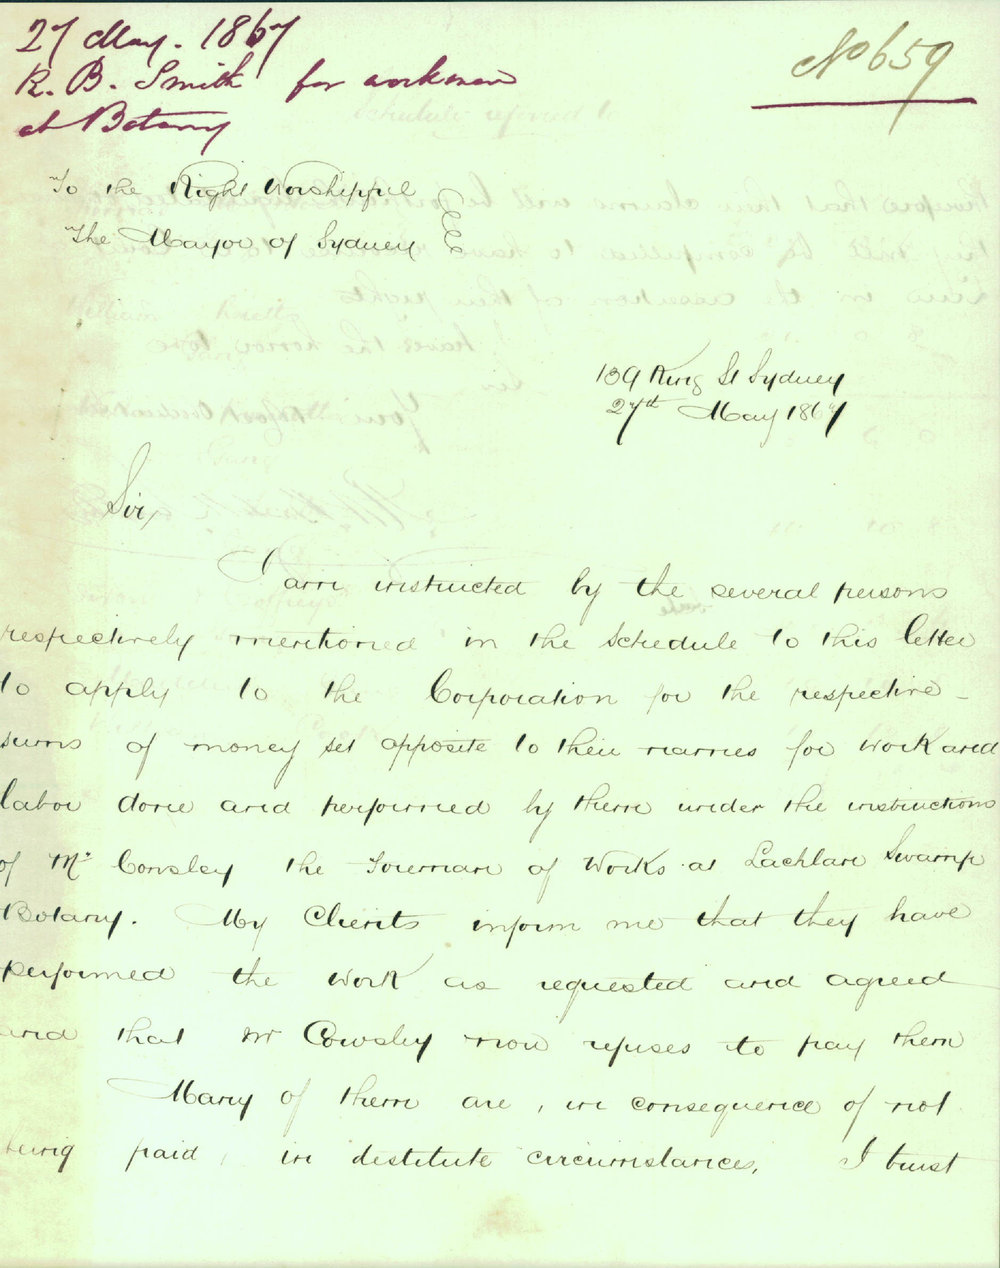 27 May. 1867
R. B. Smith for workmen
at Botany
No 659
To the Right Worshipful
The Mayor of Sydney
139 King St Sydney
27th May 1867
Sir,
I am instructed by the several persons
respectively mentioned in the schedule to this letter
to apply to the Corporation for the respective
sums of money set opposite to their names for work and
labor done and performed by them under the instructions
of Mr Cowsley the Foreman of Works at Lachlan Swamp
Botany. My Clients inform me that they have
performed the work as requested and agreed
and that Mr Cowsley now refuses to pay them
Many of them are, in consequence of not
being paid, in destitute circumstances, I trust